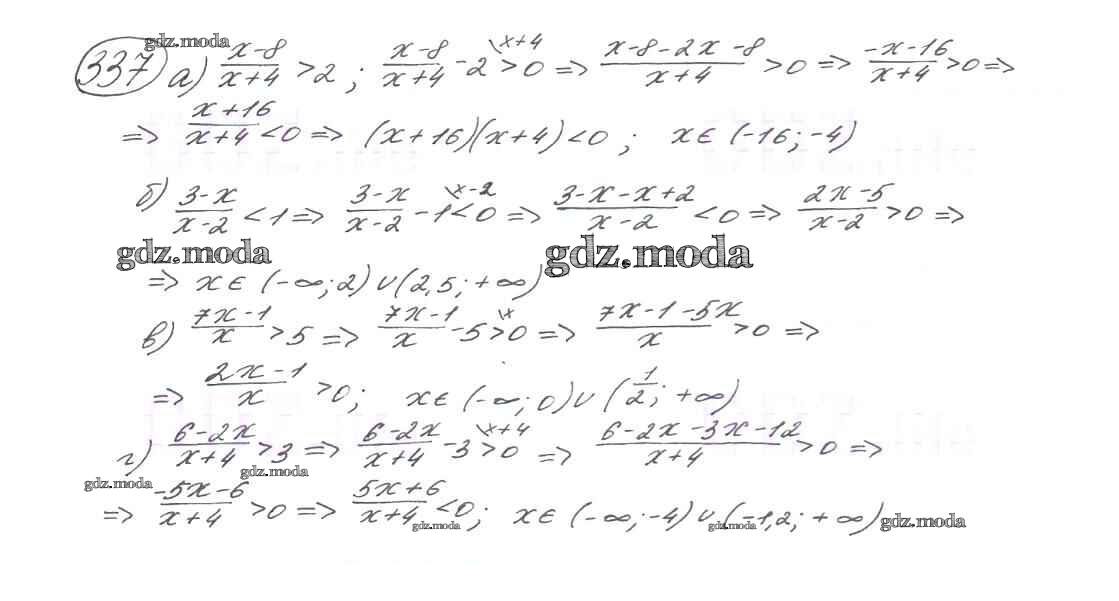 gdz.moda
337 а) (x-8)/(x+4) >2 ; (x-8)/(x+4) -2 \x+4 >0 => (x-8-2x-8)/(x+4) >0 => (-x-16)/(x+4) >0 =>
=> (x+16)/(x+4) <0 => (x+16)(x+4)<0 ; x∈ (-16; -4)
б) (3-x)/(x-2) <1 => (3-x)/(x-2) -1 \x-2 <0 => (3-x-x+2)/(x-2) <0 => (2x-5)/(x-2) >0 =>
gdz.moda gdz.moda
=> x∈ (-∞; 2) ∪ (2,5; +∞)
в) (7x-1)/x >5 => (7x-1)/x -5 \x >0 => (7x-1-5x)/x >0 =>
=> (2x-1)/x >0; x∈ (-∞; 0) ∪ (1/2; +∞)
г) (6-2x)/(x+4) >3 => (6-2x)/(x+4) -3 \x+4 >0 => (6-2x-3x-12)/(x+4) >0 =>
gdz.moda gdz.moda
=> (-5x-6)/(x+4) >0 => (5x+6)/(x+4) <0; x∈ (-∞; -4) ∪ (-1,2; +∞)
gdz.moda gdz.moda gdz.moda